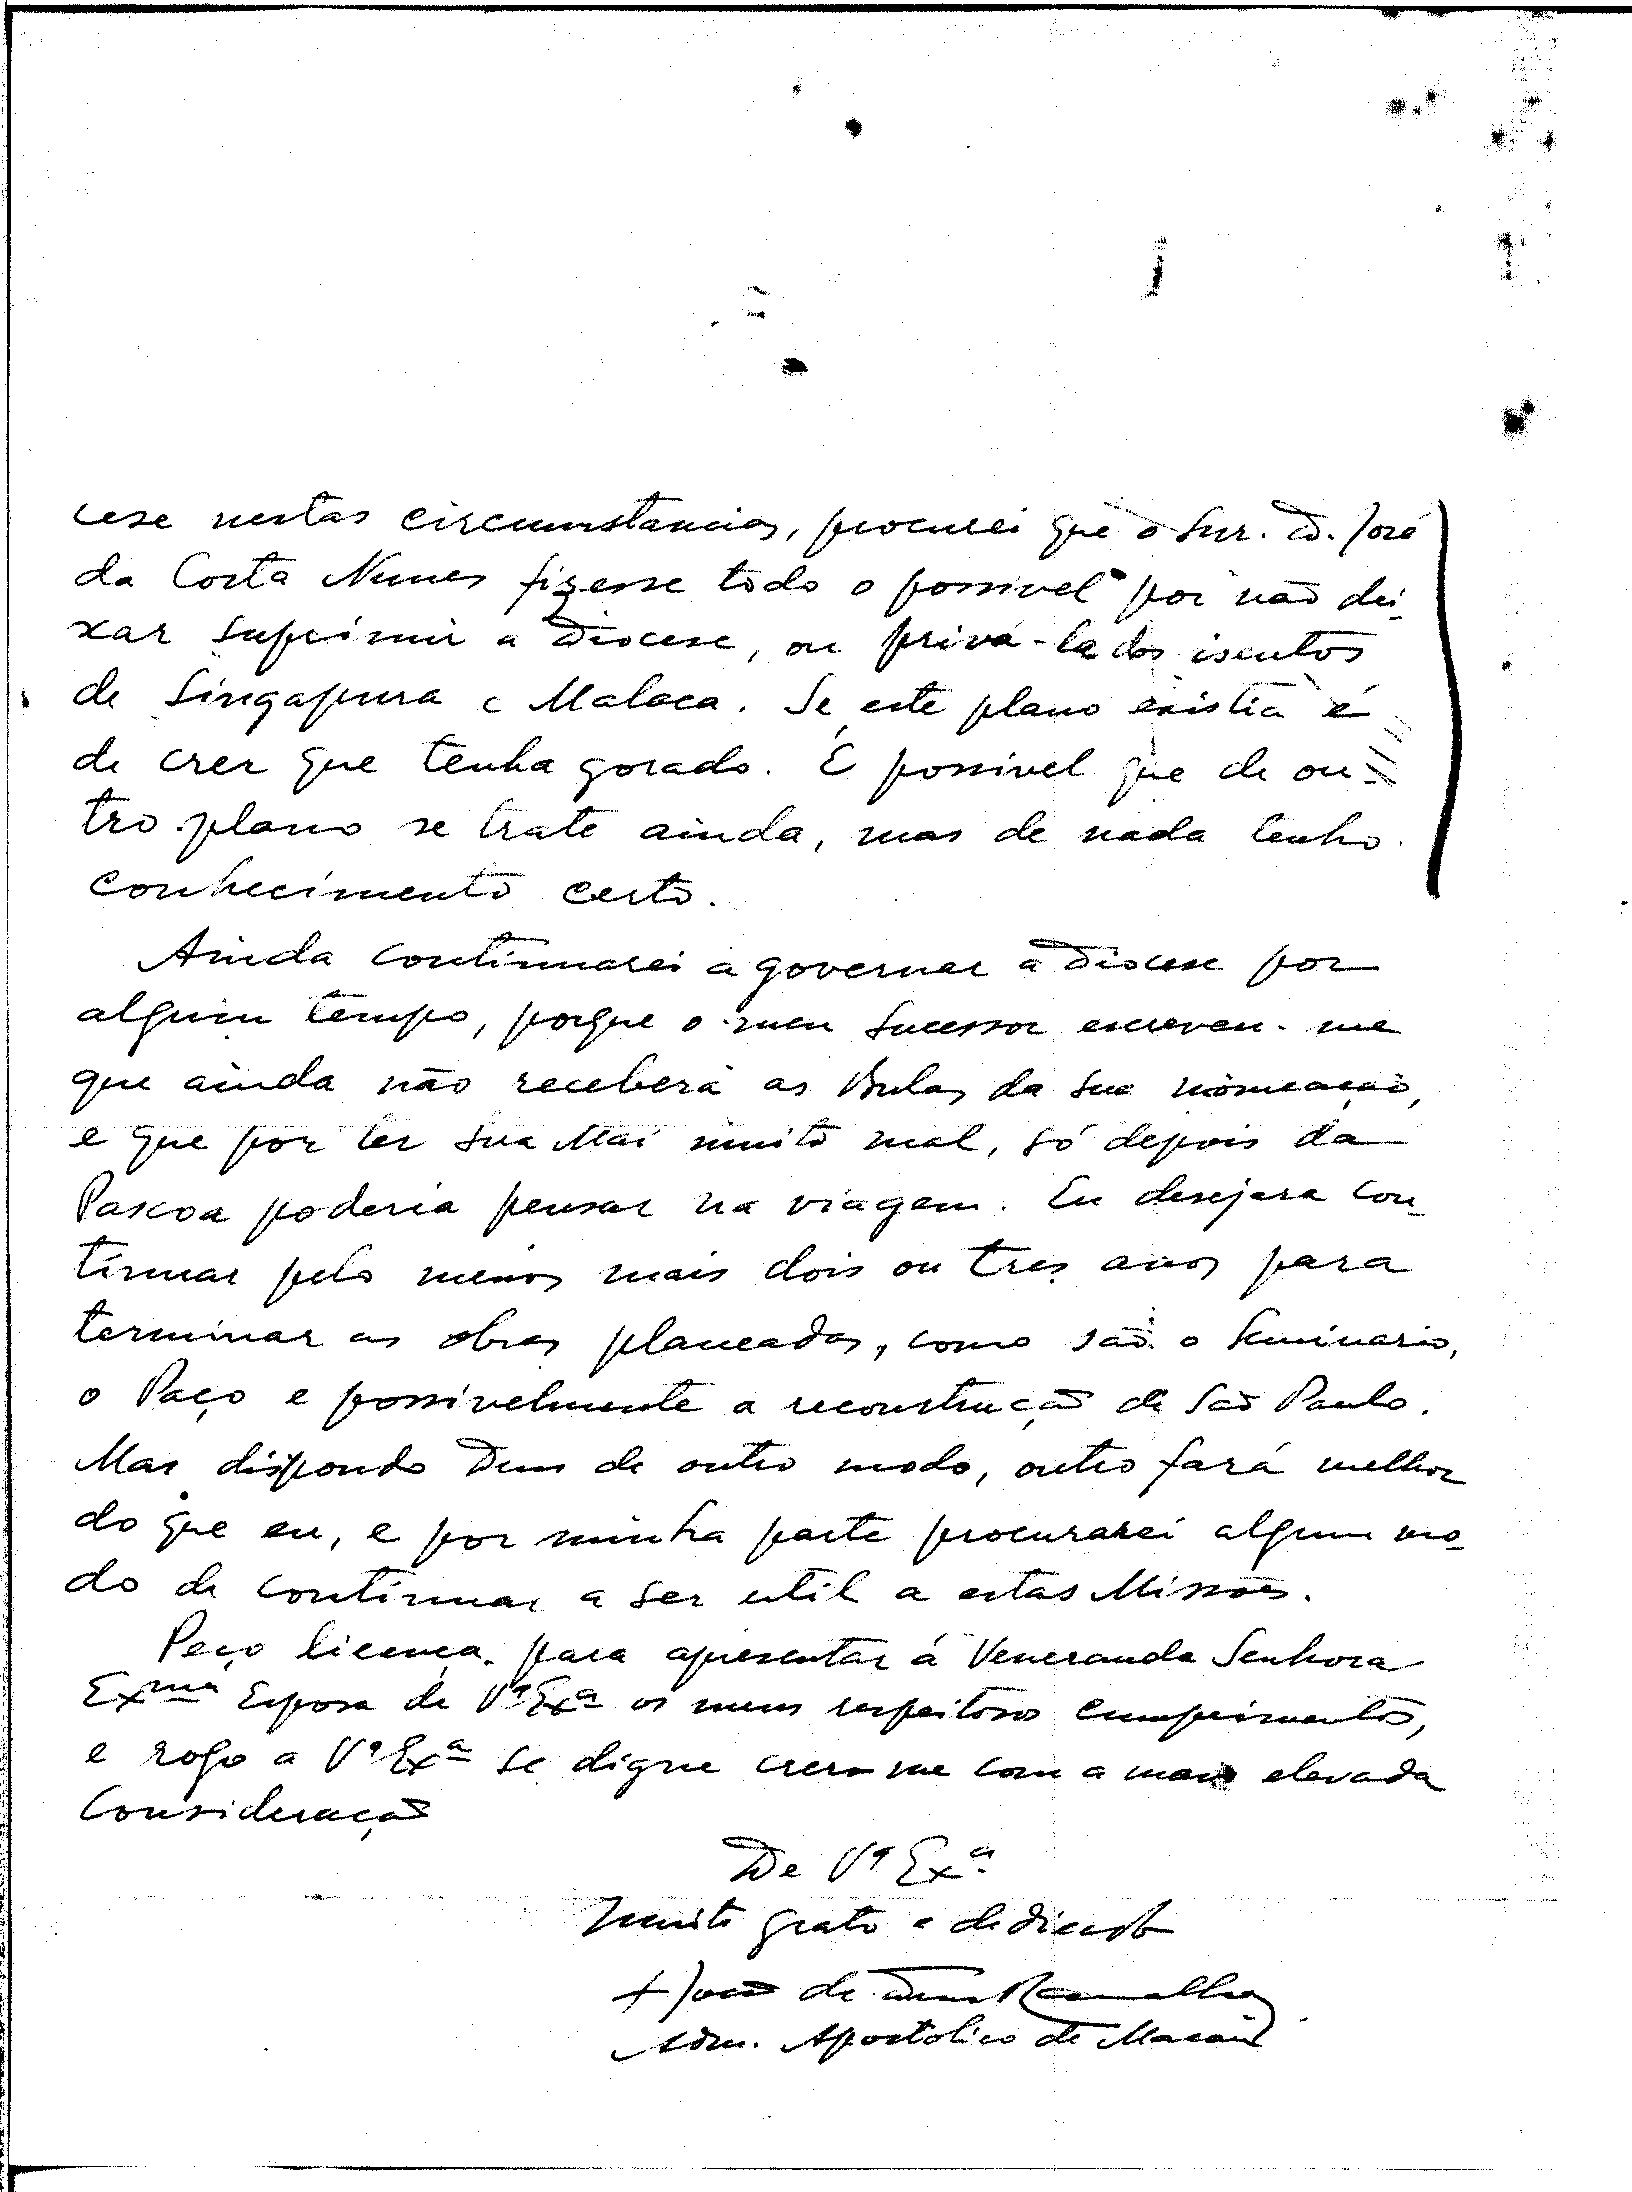 cese nestas circumstancias, procurei que o Snr. D. José
da Costa Nunes fizesse todo o possivel por não dei-
xar suprimir a Diocese, ou privá-la dos isentos
de Singapura e Malaca. Se este plano existia é
de crer que tenha gorado. É possivel que de ou-
tro plano se trate ainda, mas de nada tenho
conhecimento certo.
Ainda continuarei a governar a Diocese por
algum tempo, porque o meu sucessor escreveu-me
que ainda não receberá as Bulas da sua nomeação,
e que por ter sua Mai muito mal, só depois da
Pascoa poderia pensar na viagem. Eu desejara con-
tinuar pelo menos mais dois ou tres anos para
terminar as obras planeadas, como são o Seminario,
o Paço e possivelmente a reconstrucção de São Paulo.
Mas dispondo Deus de outro modo, outro fará melhor
do que eu, e por minha parte procurarei algum mo-
do de continuar a ser util a estas Missões.
Peço licença para apresentar á Veneranda Senhora
Exma Esposa de Vª Exª os meus respeitosos cumprimentos,
e rogo a Vª Exª se digne crer-me com a mais elevada
Consideração
De Vª Exª
Muito grato e dedicado
+ João de Deus Ramalho
Adm. Apostolico de Macau